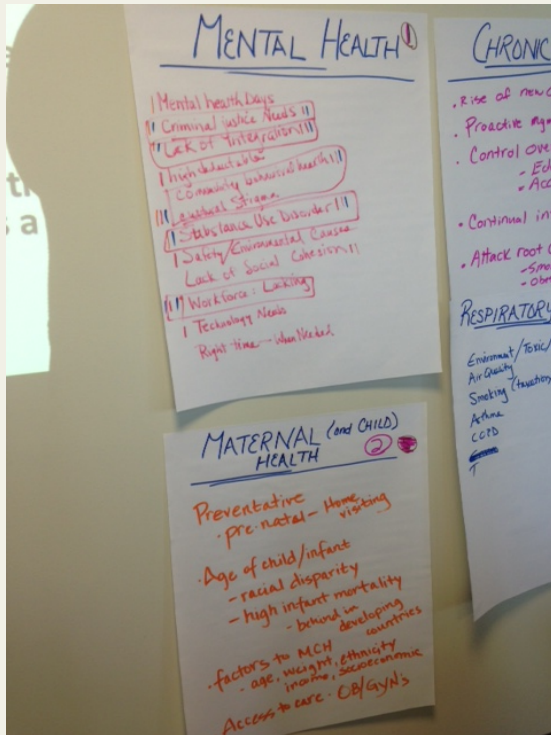 MENTAL HEALTH 1
Mental health Days
Criminal justice Needs
Lack of Integration
high deductable
Community behavioral health
Cultural Stigma
Substance Use Disorder
Safety/Environmental Causes
Lack of Social Cohesion
Workforce: Lacking
Technology Needs
Right time - When Needed
MATERNAL (and CHILD)
HEALTH 2
Preventative
· pre-natal - Home
visiting
· Age of child/infant
- racial disparity
- high infant mortality
- behind in
developing
countries
· factors to MCH
- age, weight, ethnicity
income, socioeconomic
Access to care · OB/GYN's
CHRONIC
· Rise of new
· Proactive mgm
· Control ove
· Continual in
· Attack root
RESPIRATORY
Environment/Toxic/
Air Quality
Smoking (taxation
Asthma
COPD
T